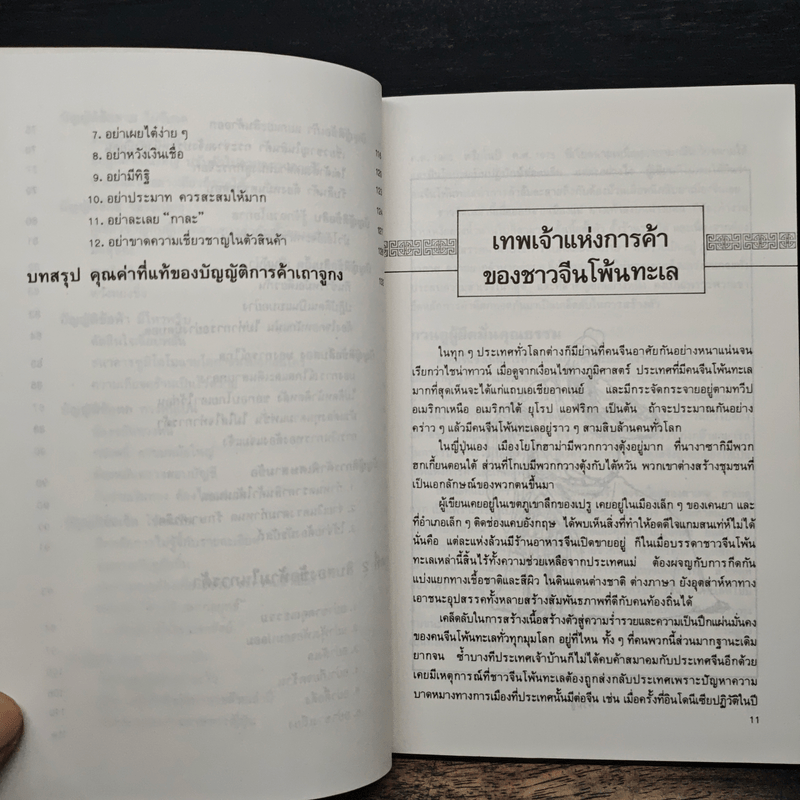 7. อย่าเผยไต๋ง่าย ๆ
8. อย่าหวังเงินเชื่อ
9. อย่ามีทิฐิ
10. อย่าประมาท ควรสะสมให้มาก
11. อย่าละเลย “กาละ”
12. อย่าขาดความเชี่ยวชาญในตัวสินค้า
บทสรุป คุณค่าที่แท้ของบัญญัติการค้าเถาจูกง
เทพเจ้าแห่งการค้า
ของชาวจีนโพ้นทะเล
ในทุก ๆ ประเทศทั่วโลกต่างก็มีย่านที่คนจีนอาศัยกันอย่างหนาแน่นจน
เรียกว่าไชน่าทาวน์ เมื่อดูจากเงื่อนไขทางภูมิศาสตร์ ประเทศที่มีคนจีนโพ้นทะเล
มากที่สุดเห็นจะได้แก่แถบเอเชียอาคเนย์ และมีกระจัดกระจายอยู่ตามทวีป
อเมริกาเหนือ อเมริกาใต้ ยุโรป แอฟริกา เป็นต้น ถ้าจะประมาณกันอย่าง
คร่าว ๆ แล้วมีคนจีนโพ้นทะเลอยู่ราว ๆ สามสิบล้านคนทั่วโลก
ในญี่ปุ่นเอง เมืองโยโกฮาม่ามีพวกกวางตุ้งอยู่มาก ที่นางาซากิมีพวก
ฮกเกี้ยนตอนใต้ ส่วนที่โกเบมีพวกกวางตุ้งกับไต้หวัน พวกเขาต่างสร้างชุมชนที่
เป็นเอกลักษณ์ของพวกตนขึ้นมา
ผู้เขียนเคยอยู่ในเขตภูเขาลึกของเปรู เคยอยู่ในเมืองเล็ก ๆ ของเคนยา และ
ที่อำเภอเล็ก ๆ ติดช่องแคบอังกฤษ ได้พบเห็นสิ่งที่ทำให้อดดีใจแกมสนเท่ห์ไม่ได้
นั่นคือ แต่ละแห่งล้วนมีร้านอาหารจีนเปิดขายอยู่ ก็ในเมื่อบรรดาชาวจีนโพ้น
ทะเลเหล่านี้สิ้นไร้ทั้งความช่วยเหลือจากประเทศแม่ ต้องผจญกับการกีดกัน
แบ่งแยกทางเชื้อชาติและสีผิว ในดินแดนต่างชาติ ต่างภาษา ยังอุตส่าห์หาทาง
เอาชนะอุปสรรคทั้งหลายสร้างสัมพันธภาพที่ดีกับคนท้องถิ่นได้
เคล็ดลับในการสร้างเนื้อสร้างตัวสู่ความร่ำรวยและความเป็นปึกแผ่นมั่นคง
ของคนจีนโพ้นทะเลทั่วทุกมุมโลก อยู่ที่ไหน ทั้ง ๆ ที่คนพวกนี้ส่วนมากฐานะเดิม
ยากจน ซ้ำบางทีประเทศเจ้าบ้านก็ไม่ได้คบค้าสมาคมกับประเทศจีนอีกด้วย
เคยมีเหตุการณ์ที่ชาวจีนโพ้นทะเลต้องถูกส่งกลับประเทศเพราะปัญหาความ
บาดหมางทางการเมืองที่ประเทศนั้นมีต่อจีน เช่น เมื่อครั้งที่อินโดนีเซียปฏิวัติในปี
11